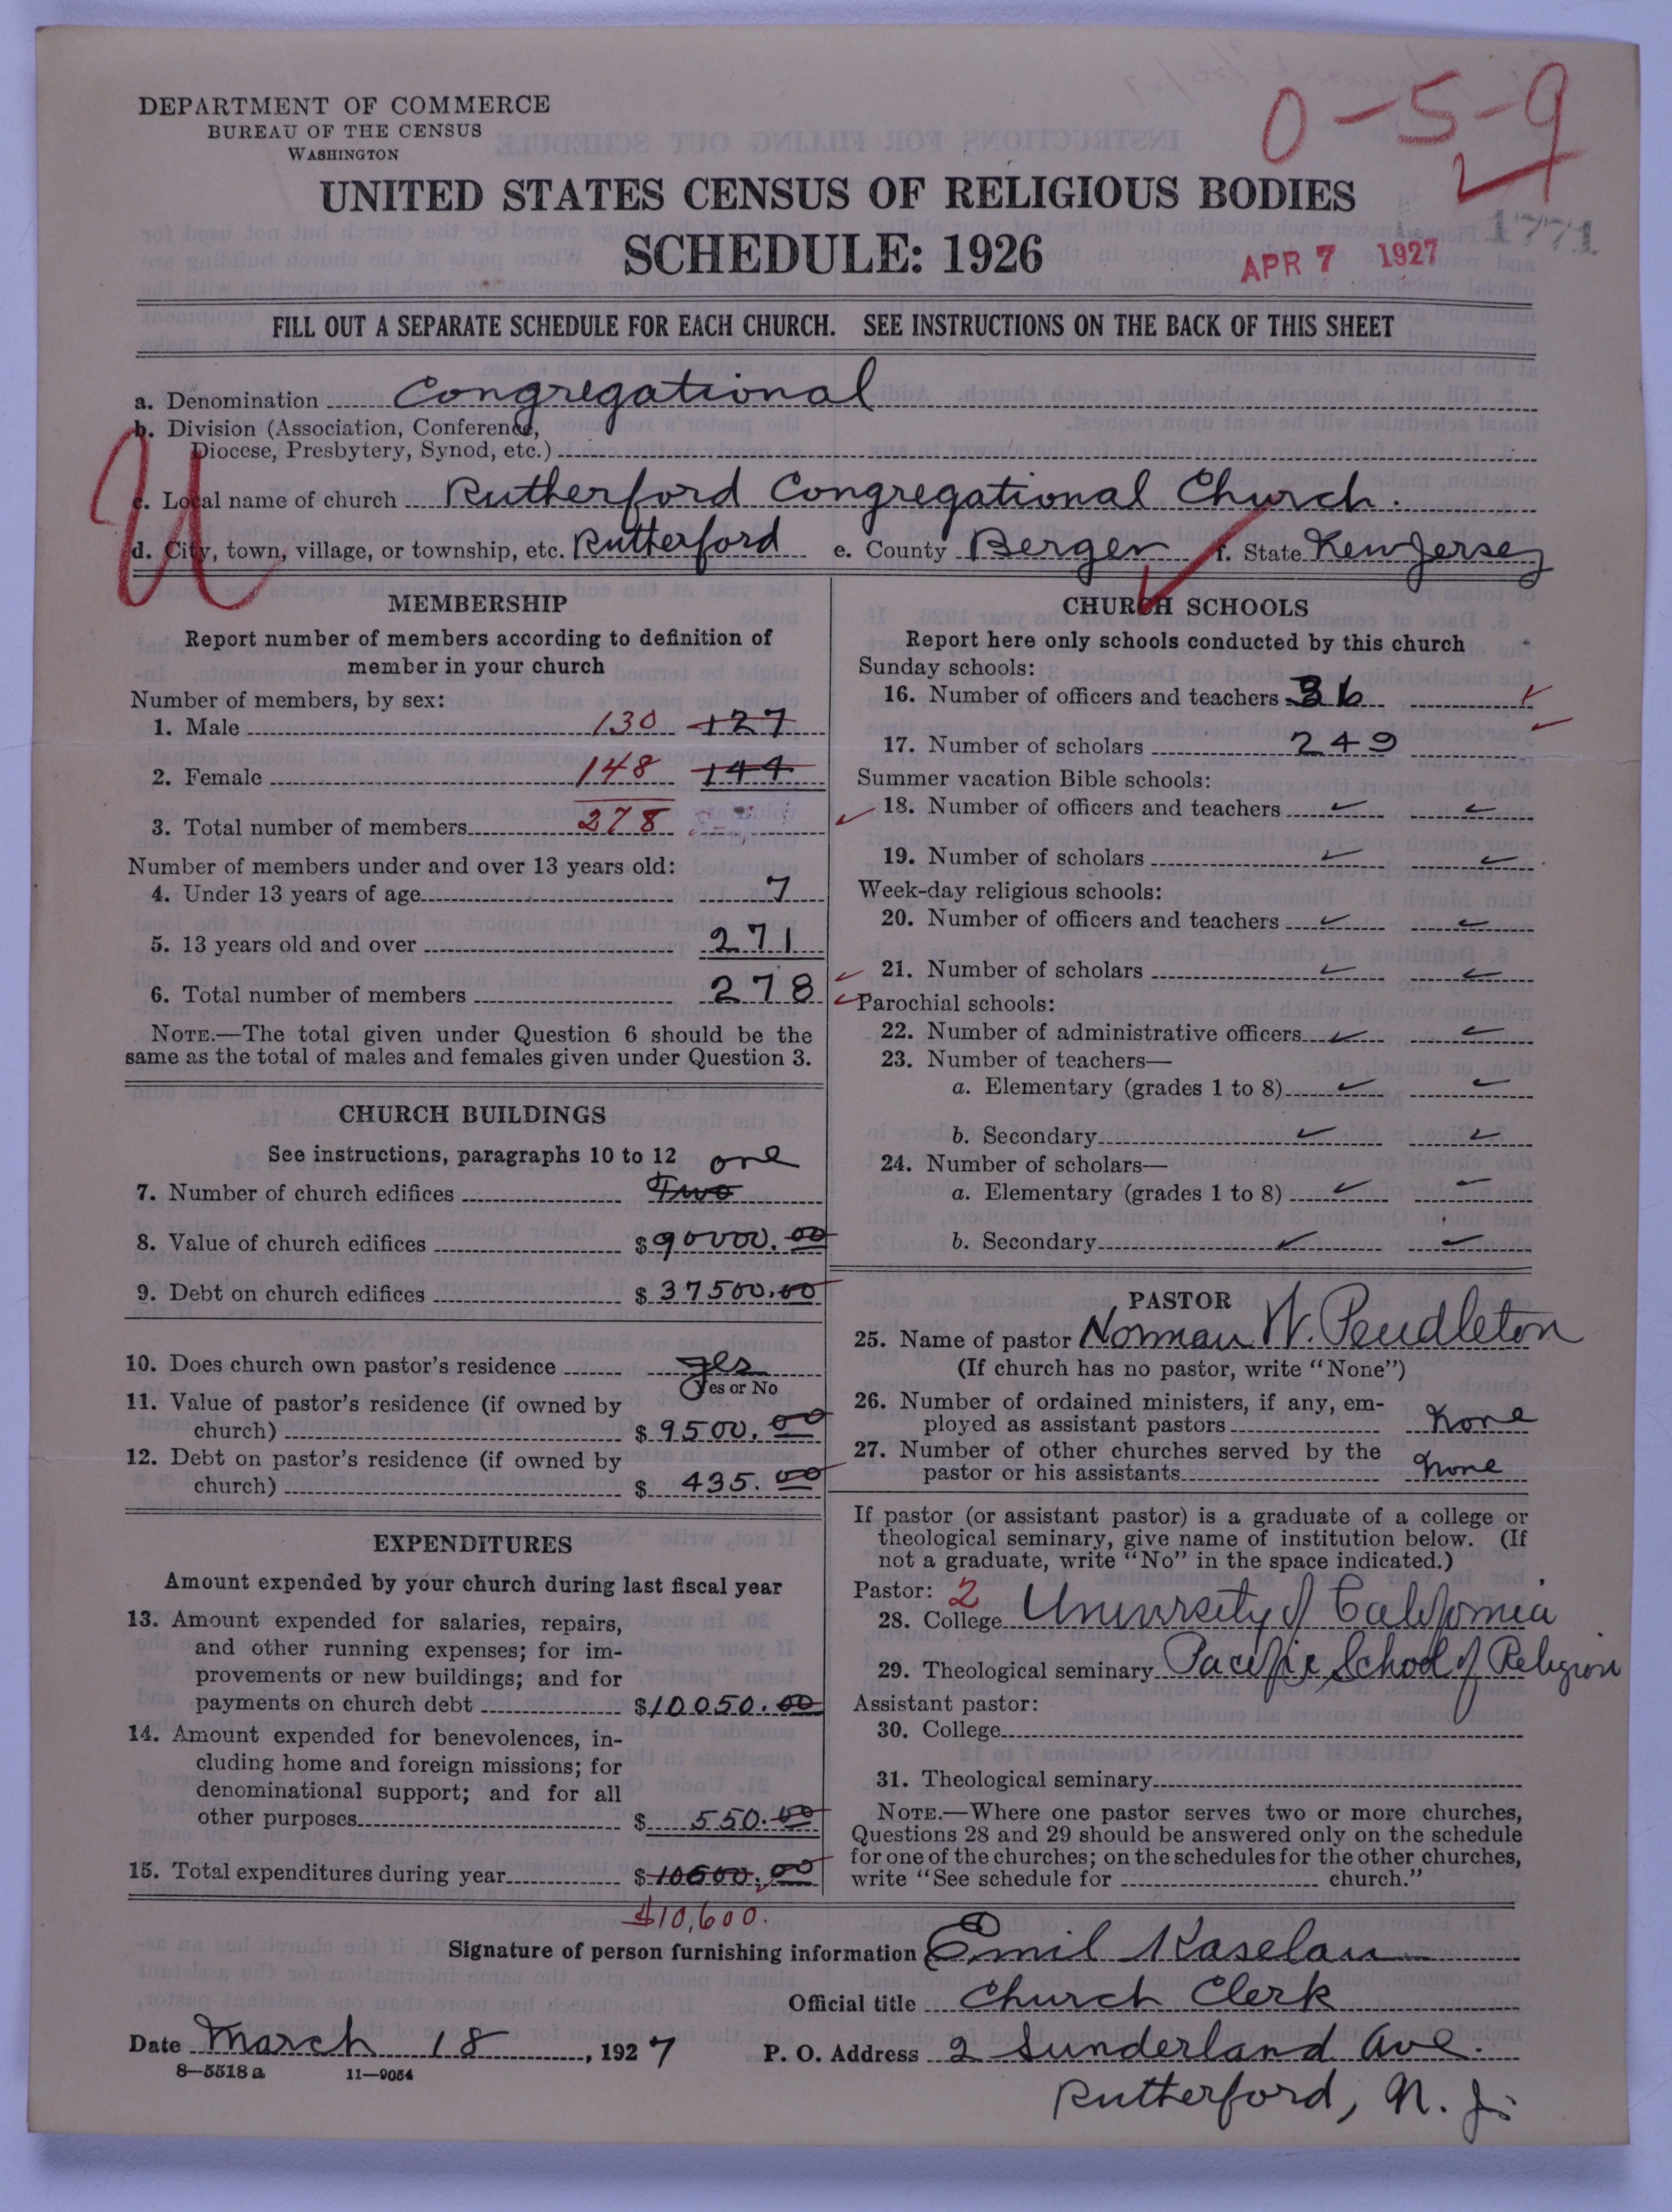 0-5-9
DEPARTMENT OF COMMERCE
BUREAU OF THE CENSUS
WASHINGTON
UNITED STATES CENSUS OF RELIGIOUS BODIES
SCHEDULE: 1926
1771
APR 7 1927
FILL OUT A SEPARATE SCHEDULE FOR EACH CHURCH. SEE INSTRUCTIONS ON THE BACK OF THIS SHEET
a. Denomination Congregational
b. Division (Association, Conference,
Diocese, Presbytery, Synod, etc.)
U
c. Local name of church Rutherford Congregational Church.
d. City, town, village, or township, etc. Rutherford e. County Bergen f. State New Jersey
MEMBERSHIP
Report number of members according to definition of
member in your church
Number of members, by sex:
1. Male 130 127
2. Female 148 144
3. Total number of members 278
Number of members under and over 13 years old:
4. Under 13 years of age 7
5. 13 years old and over 271
6. Total number of members 278
NOTE.—The total given under Question 6 should be the
same as the total of males and females given under Question 3.
CHURCH BUILDINGS
See instructions, paragraphs 10 to 12 one
7. Number of church edifices Two
8. Value of church edifices $90000.00
9. Debt on church edifices $37500.00
10. Does church own pastor's residence yes
Yes or No
11. Value of pastor's residence (if owned by
church) $9500.00
12. Debt on pastor's residence (if owned by
church) $435.00
EXPENDITURES
Amount expended by your church during last fiscal year
13. Amount expended for salaries, repairs,
and other running expenses; for im-
provements or new buildings; and for
payments on church debt $10050.00
14. Amount expended for benevolences, in-
cluding home and foreign missions; for
denominational support; and for all
other purposes $550.00
15. Total expenditures during year $10600.00
$10,600.
CHURCH SCHOOLS
Report here only schools conducted by this church
Sunday schools:
16. Number of officers and teachers 36
17. Number of scholars 249
Summer vacation Bible schools:
18. Number of officers and teachers
19. Number of scholars
Week-day religious schools:
20. Number of officers and teachers
21. Number of scholars
Parochial schools:
22. Number of administrative officers
23. Number of teachers—
a. Elementary (grades 1 to 8)
b. Secondary
24. Number of scholars—
a. Elementary (grades 1 to 8)
b. Secondary
PASTOR
25. Name of pastor Norman W. Pendleton
(If church has no pastor, write "None")
26. Number of ordained ministers, if any, em-
ployed as assistant pastors None
27. Number of other churches served by the
pastor or his assistants None
If pastor (or assistant pastor) is a graduate of a college or
theological seminary, give name of institution below. (If
not a graduate, write "No" in the space indicated.)
Pastor: 2
28. College University of California
29. Theological seminary Pacific School of Religion
Assistant pastor:
30. College
31. Theological seminary
NOTE.—Where one pastor serves two or more churches,
Questions 28 and 29 should be answered only on the schedule
for one of the churches; on the schedules for the other churches,
write "See schedule for church."
Signature of person furnishing information Emil Kaselau
Official title Church Clerk
Date March 18, 1927 P. O. Address 2 Sunderland Ave.
8-5518 a 11-9054
Rutherford, N. J.